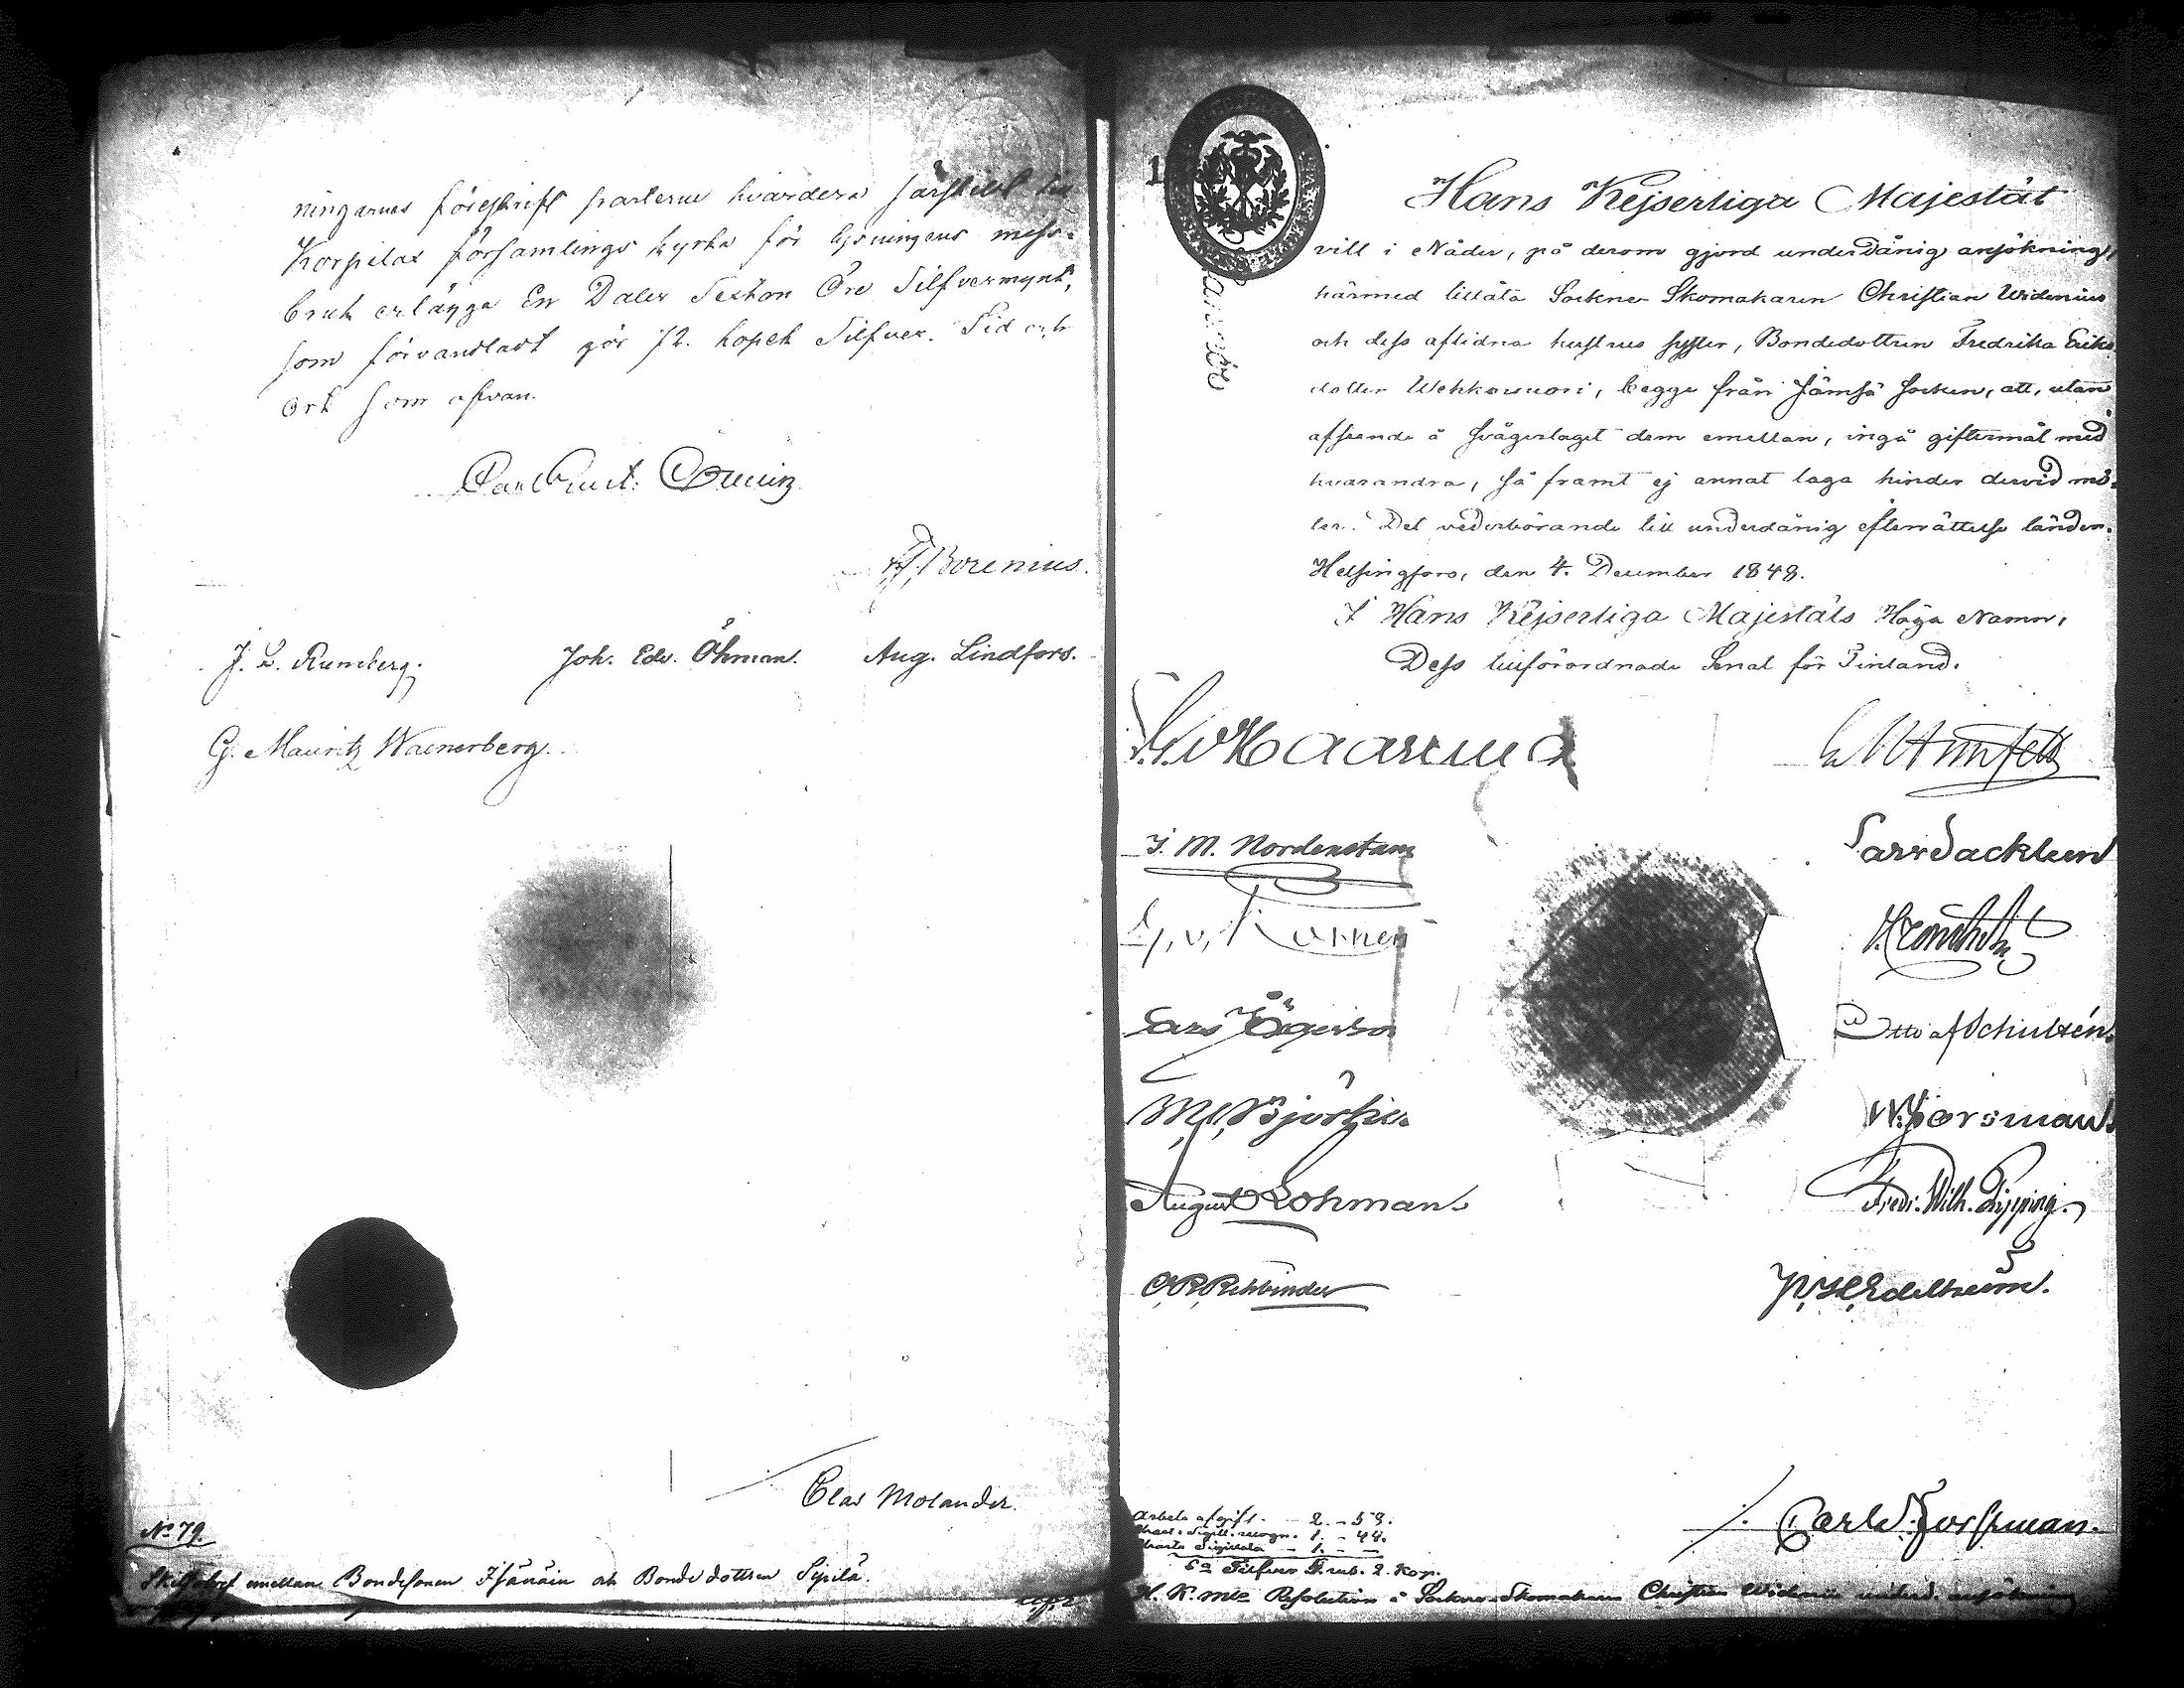 ningarnes föreskrift parterne hvardera särskildt till
Korpilax församlings kyrka för lysningens miss-
bruk erlägga En Daler Sexton Öre Silfvermynt,
som förvandladt gör 72. kopek Silfver. Tid och
ort som ofvan.
Borenius.
J. L. Runeberg. Joh. Edv. Öhman. Aug. Lindfors.
G. Mauritz Waenerberg.
Clas Molander.
No 79.
Skiljobref emellan Bondesonen Isäniäin och Bondedottren Sipilä.
Hans Kejserliga Majestät
vill i Nåder, på derom gjord underdånig ansökning,
härmed tillåta Sockne Skomakaren Christian Widenius
och dess aflidna hustrus syster, Bondedottren Fredrika Eriks-
dotter Wehkavuori, begge från Jämsä socken, att, utan
afseende å svågerlaget dem emellan, ingå giftermål med
hvarandra, så framt ej annat laga hinder dervid mö-
ter. Det vederbörande till underdånig efterrättelse länder.
Helsingfors, den 4. December 1848.
I Hans Kejserliga Majestäts Höga Namn,
Dess tillförordnade Senat för Finland.
L. G. v Haartman
J. M. Nordenstam
Lars Sackleen
Otto af Schultén.
W. Forsman.
August Lohman.
Fredr. Wilh. Pipping.
Rehbinder
Edelheim.
Arbets afgift. - 2. - 58.
Chart. Sigill. recogn. 1. - 44.
Charta Sigillata - 1. - -
Sa Silfver S. rub. 2. kop.
Carl W. Forssman.
H. K. Mts Resolution å Sockne-Skomakaren Christian Widenii underd. ansökning